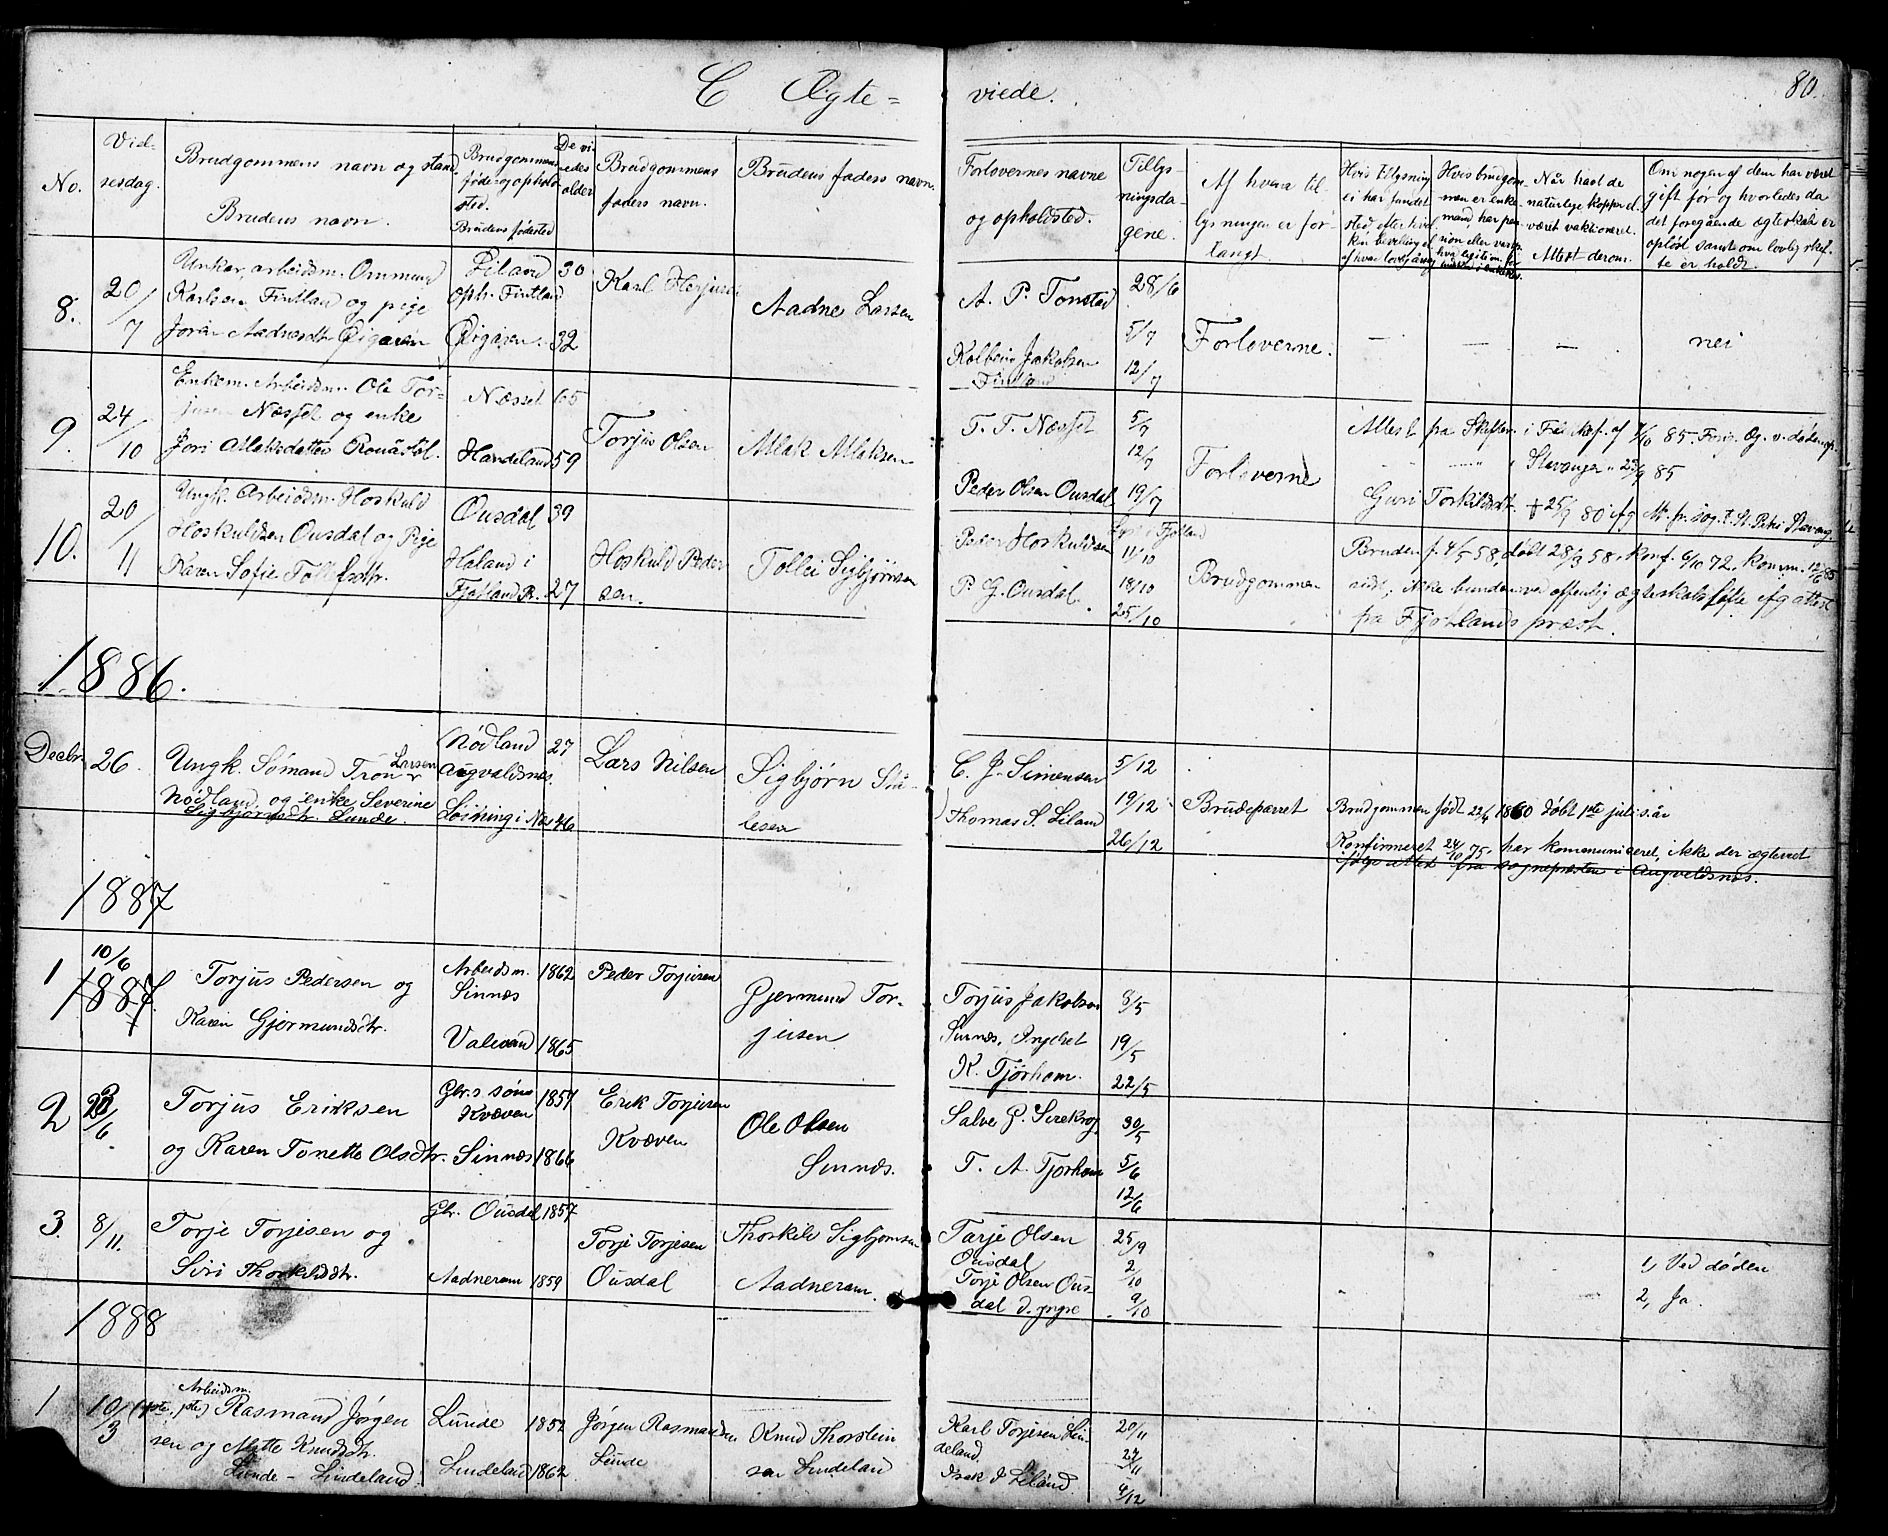 C Ægte= viede. 80.
No.
Viel-
sesdag.
Brudgommens navn og stand.
Brudens navn.
Brudgommens
føde og opholds
sted.
Brudens fødested
De vi-
edes
alder
Brudgommens
faders navn.
Brudens faders navn.
Forlovernes navne
og opholdsted.
Tillys-
ningsda-
gene.
Af hvem til
lysningen er for-
langt.
Hvis tillysning
ei har fundet
sted, efter hvil
ken bevilling el.
Hvis brudgom-
men er enke-
mand, har pen
sion eller
Når havt de
naturlige kopper el.
været vaktioneret.
Attest derom.
Om nogen af dem har været
gift før og hvorledes da
det foregående ægteskab er
opløst samt om lovlig skif-
te er holdt.
8.
20/7
Unkar, arbeidsm. Ommund
Karlsen Fintland og pige
Joran Aadnesdtr. Øigaren
Liland 30
oph. Fintland
Øigaren. 32
Karl
Aadne Larsen
A. P. Tonstad
Kolbein Jakobsen
Fintland
28/6
5/7
12/7
Forloverne.
— — — nei
9.
24/10
Enkem. Arbeidsm. Ole Tor-
jusen Næsset og enke
Jori Atlaksdatter
Næsset 65
Handeland 59
Torjus Olsen
Atlak Atlaksen
T. T. Næsset
Peder Olsen Ousdal
5/7
12/7
19/7
Forloverne
Attest fra Skifter. i
Stavanger 85
Guri Torkildsdtr. 80
10.
20/11
Ungk. Arbeidsm. Hoskuld
Hoskuldsen Ousdal og Pige
Karen Sofie Tollefsdtr.
Ousdal 39
Haland i
Fjotland P. 27
Hoskuld Peder
sen.
Tollei Sigbjørnsen
Peder Hoskuldsen
P. G. Ousdal.
11/10
18/10
25/10
Brudgommen
Bruden f. 4/5 58, døbt 28/3 58. konf. 6/10 72. komm. 12/6 85
sidst, ikke bunden ved offentlig ægteskabsløfte ifg attest
fra Fjotlands præst.
1886.
Decbr. 26.
Ungk. Sømand Tron Larsen
Nødland og enke Severine
Sigbjørnsdtr. Lunde.
Nødland 27
Augvaldsnes.
Løining i Næs 46
Lars Nilsen
Sigbjørn
lesen
C. J. Simensen
Thomas S. Liland
5/12
19/12
26/12
Brudeparret
Brudgommen født 22/6 1860 døbt 1ste juli s. år
Konfirmeret 24/10 75. har kommuniceret, ikke der ægteviet
ifølge attest fra sognepresten i Augvaldsnæs.
1887
1
10/6
1887.
Torjus Pedersen og
Karen Gjermundsdtr.
Arbeidsm. 1862
Sinnes
Valevand 1865
Peder Torjusen
Gjermund Tor-
jusen
Torjus Jakobsen
Sinnes,
K. Tjørhom.
8/5
19/5
22/5
2
Torjus Eriksen
og Karen Tonette Olsdtr.
Gbr.s søn 1857
Kvæven
Sinnes 1866
Erik Torjusen
Kvæven
Ole Olsen
Sinnes.
Salve P. Sirekrog
T. A. Tjorhom
30/5
5/6
12/6
3.
8/11.
Torje Torjesen og
Siri Thorkildsdtr.
Gbr. Ousdal 1857
Aadneram 1859
Torje Torjesen
Ousdal
Thorkild Sigbjørnsen
Aadneram.
Tarje Olsen
Ousdal
Torje Olsen Ous-
dal d. yngre
25/9
2/10
9/10
1, Ved døden
2, Ja.
1888
1
10/3
Arbeidsm.
Rasmund Jørgen
sen og Mette Knudsdtr.
Lunde – Lindeland.
Lunde 1852
Lindeland 1862
Jørgen Rasmundsen
Lunde
Knud Thorstein
sen Lindeland
Karl Torjesen Lin-
deland.
Isak J Liland.
20/11
27/11
4/12